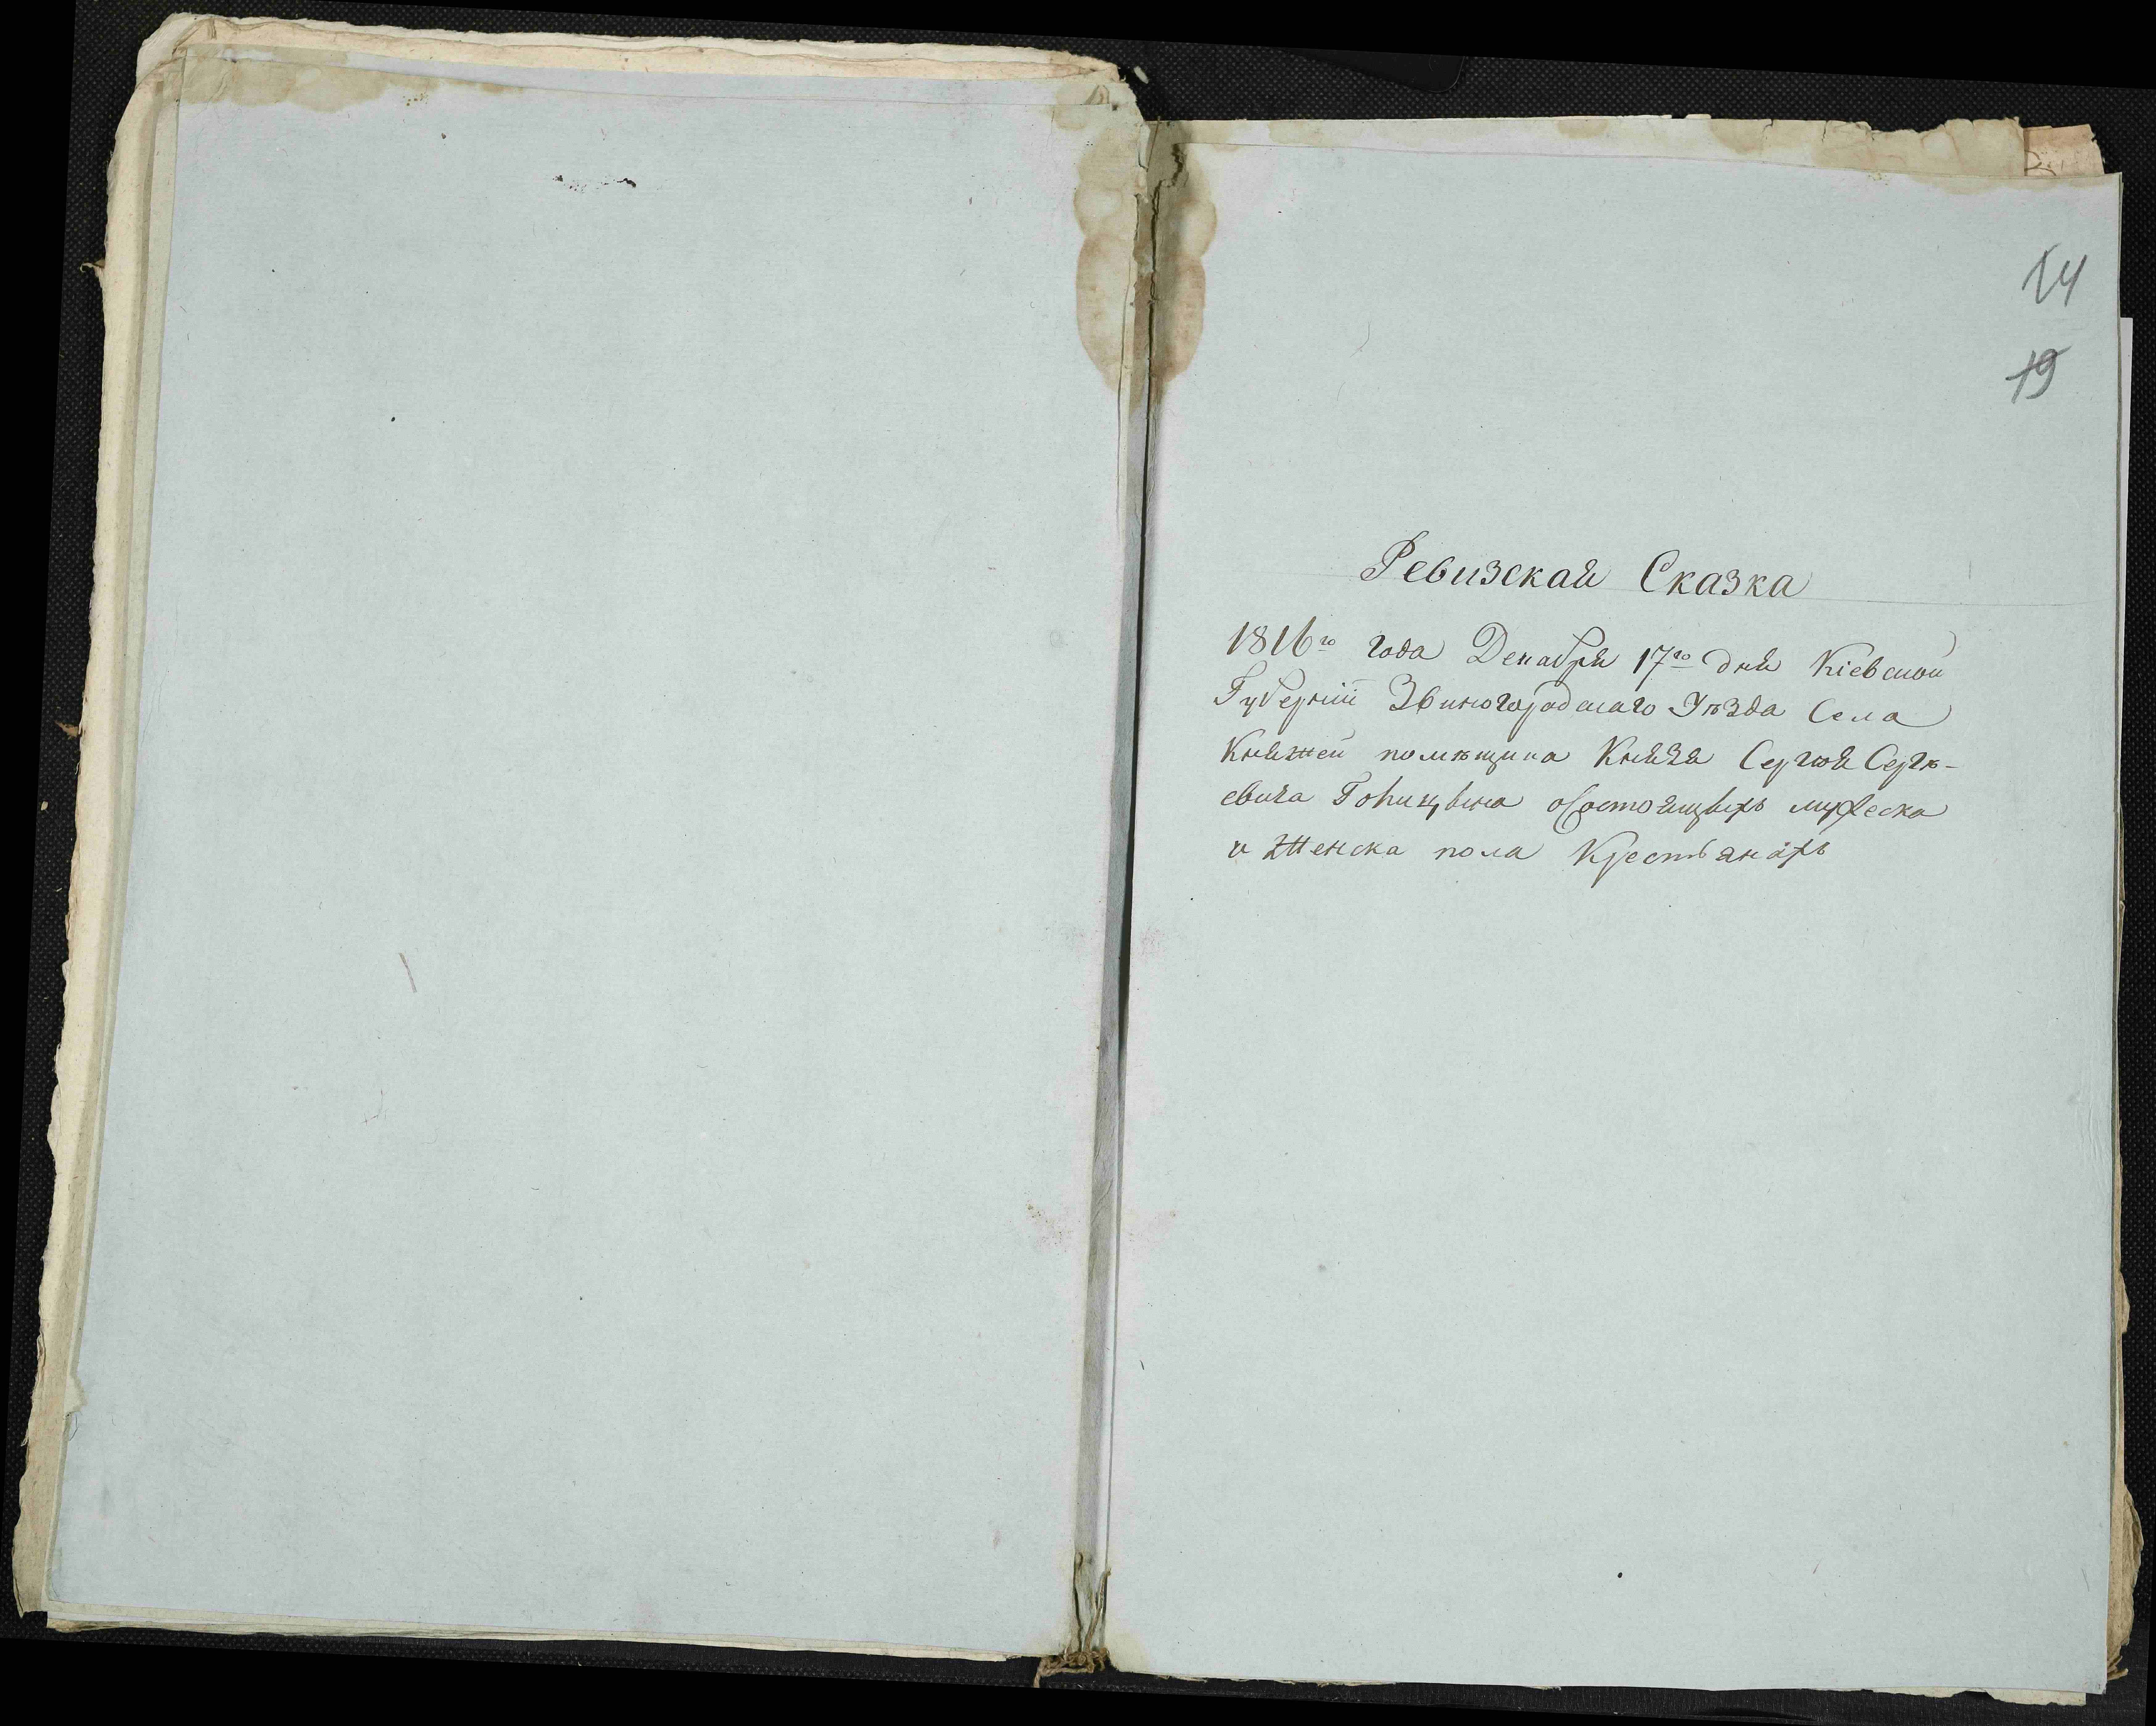 14
19
Ревизская Сказка
1816го года Декабря 17го дня Кіевской
Губерніи Звиногородскаго Уѣзда Села
Княжей помѣщика Князя Сергѣя Сергѣ-
евича Голицына о состоящихъ мужеска
и Женска пола Крестьянахъ